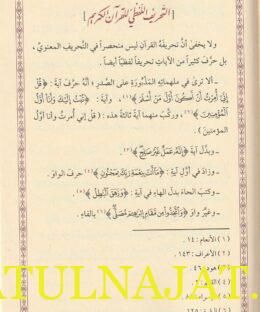 التحريف اللفظي للقرآن الكريم
ولا يخفى أنّ تحريفه القرآن ليس منحصراً في التحريف المعنوي،
بل حرّف كثيراً من الآيات تحريفاً لفظياً أيضاً.
ـ ألا ترى في ملهماته المذبورة على الصدر: أنّه حرّف آية: ﴿قُلْ
إِنِّي أُمِرْتُ أَنْ أَكُونَ أَوَّلَ مَنْ أَسْلَمَ﴾(١) وآية: ﴿تُبْتُ إِلَيْكَ وَأَنَا أَوَّلُ
الْمُؤْمِنِينَ﴾(٢) وركب منهما آية ثالثة هذه: (قل إني أمرت وأنا أول
المؤمنين).
ـ وبدّل آية: ﴿إِنَّهُ عَمَلٌ غَيْرُ صَالِحٍ﴾(٣).
ـ وزاد في أوّل آية: ﴿مَا أَنْتَ بِنِعْمَةِ رَبِّكَ بِمَجْنُونٍ﴾(٤) حرف الواو.
ـ وكتب الحاء بدل الهاء في آية: ﴿وَزَهَقَ الْبَاطِلُ﴾(٥).
ـ وغيّر واوَ ﴿وَاتَّخِذُوا مِنْ مَقَامِ إِبْرَاهِيمَ مُصَلًّى﴾(٦) بالفاء.
(١) الأنعام: ١٤.
(٢) الأعراف: ١٤٣.
(٣) هود: ٤٦.
(٤) القلم: ٢.
(٥) الإسراء: ٨١.
(٦) البقرة: ١٢٥.
ATULNAJAT.